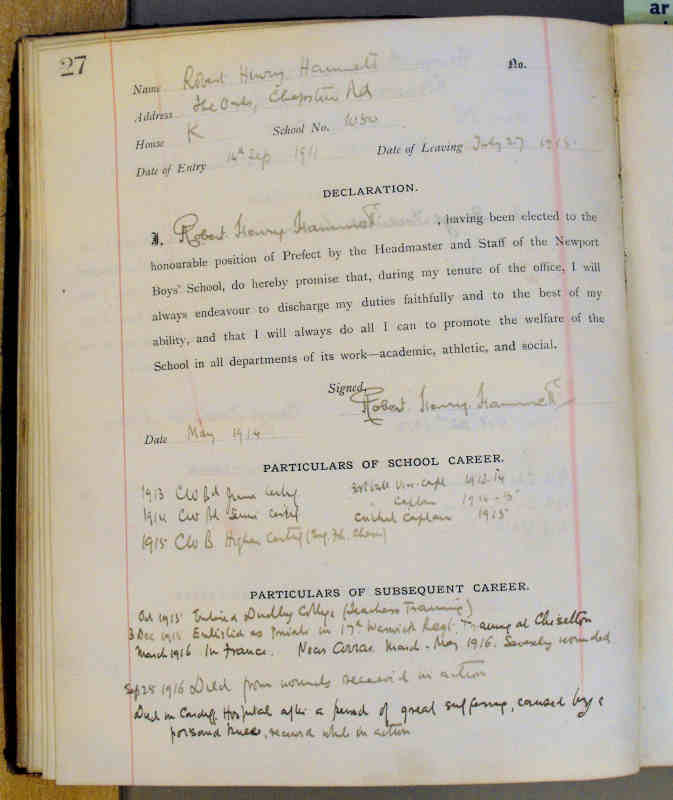 ar
27
Name Robert Henry Hammett No.
Address The Oaks, Chepstow Rd
House K School No. 1050
Date of Entry 14th Sep 1911 Date of Leaving July 27 1915.
DECLARATION.
I, Robert Henry Hammett, having been elected to the
honourable position of Prefect by the Headmaster and Staff of the Newport
Boys' School, do hereby promise that, during my tenure of the office, I will
always endeavour to discharge my duties faithfully and to the best of my
ability, and that I will always do all I can to promote the welfare of the
School in all departments of its work—academic, athletic, and social.
Signed,
Robert Henry Hammett
Date May 1914
PARTICULARS OF SCHOOL CAREER.
1913 CWB Junior Certif Football Vice-Capt 1913-14
1914 CWB Senior Certif Captain 1914-5
1915 CWB Higher Certif (Eng. Fr. Chem) Cricket Captain 1915
PARTICULARS OF SUBSEQUENT CAREER.
Oct 1915 Entered Dudley College (Teachers Training)
3 Dec 1915 Enlisted as Private in 17th Warwick Regt. Training at Chiseldon
March 1916 In France. Near Arras. March - May 1916. Severely wounded
Sep 28 1916 Died from wounds received in action
Died in Cardiff Hospital after a period of great suffering, caused by a
poisoned knee, received while in action